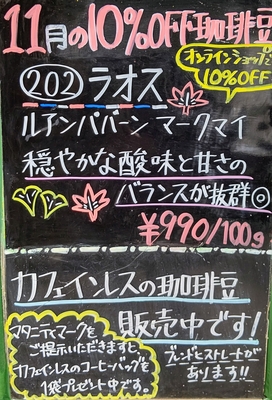 11月の10%OFF珈琲豆
オンラインショップで
10%OFF
202 ラオス
ルアンパバーン マークマイ
穏やかな酸味と甘さの
バランスが抜群◎
¥990/100g
カフェインレスの珈琲豆
販売中です!
マタニティマークを
ご提示いただきますと、
カフェインレスのコーヒーバッグを
1袋プレゼント中です。
ブレンドとストレートが
あります!!